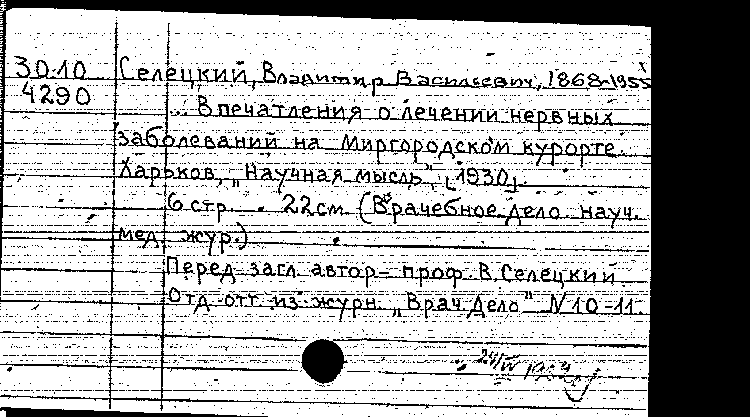 30.10 Селецкий, Владимир Васильевич, 1868-1955
4290
... Впечатления о лечении нервных
заболеваний на Миргородском курорте.
Харьков, „Научная мысль", [1930].
6 стр. 22см. (Врачебное дело науч.
мед. жур.)
Перед загл. автор – проф. В. Селецкий.
Отд. отт. из журн. „Врач. Дело" N 10-11.
24/IV